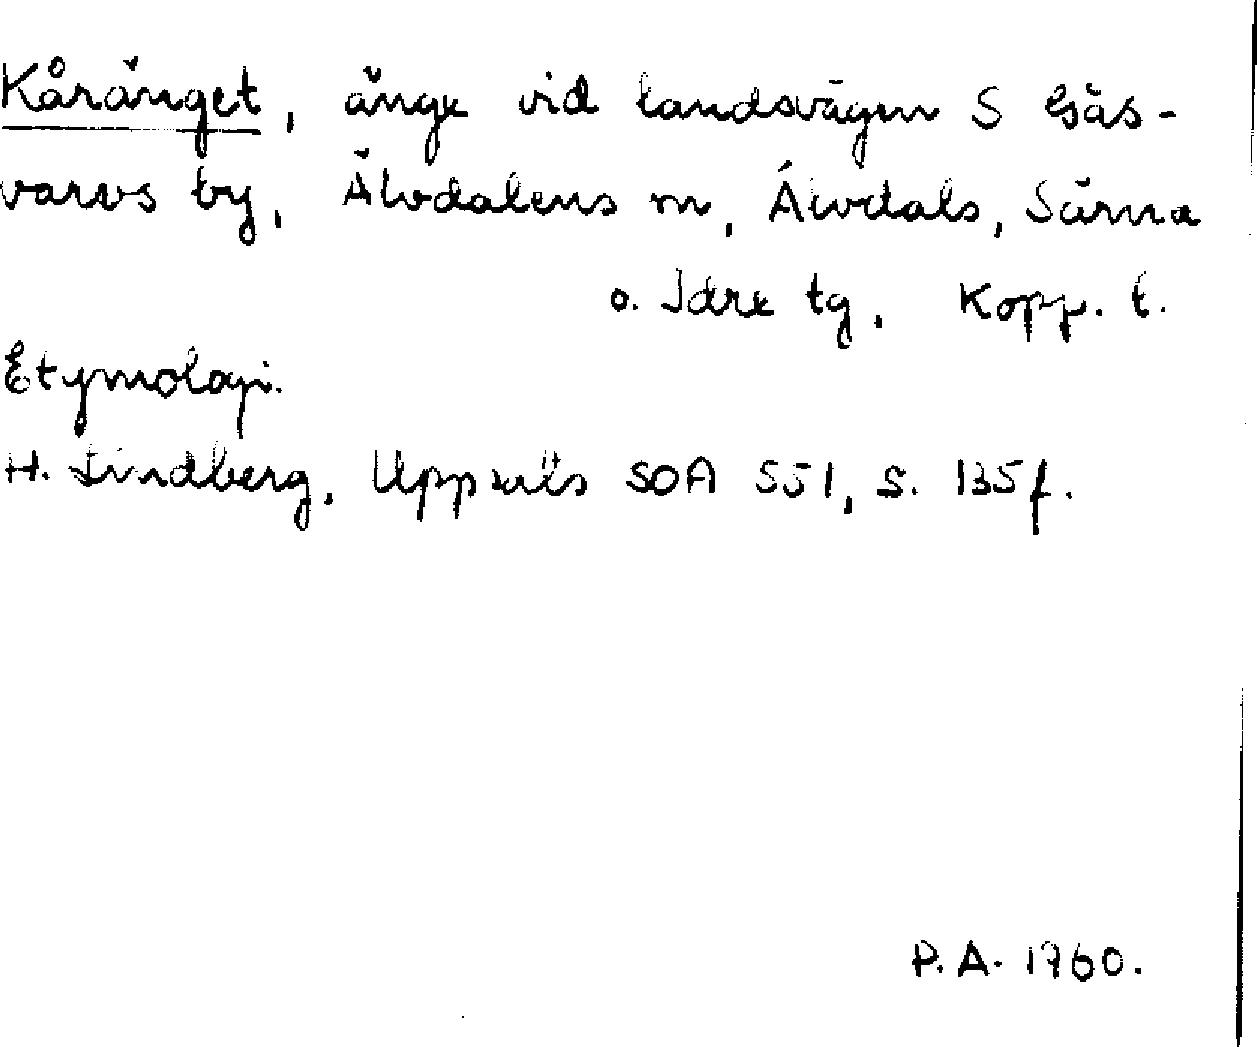 Kåränget, änge vid landsvägen S Gäs-
varvs by, Älvdalens sn, Älvdals, Särna
o. Idre tg, Kopp. l.
Etymologi.
H. Lindberg, Uppsats SOA 551, s. 135 f.
P. A. 1960.